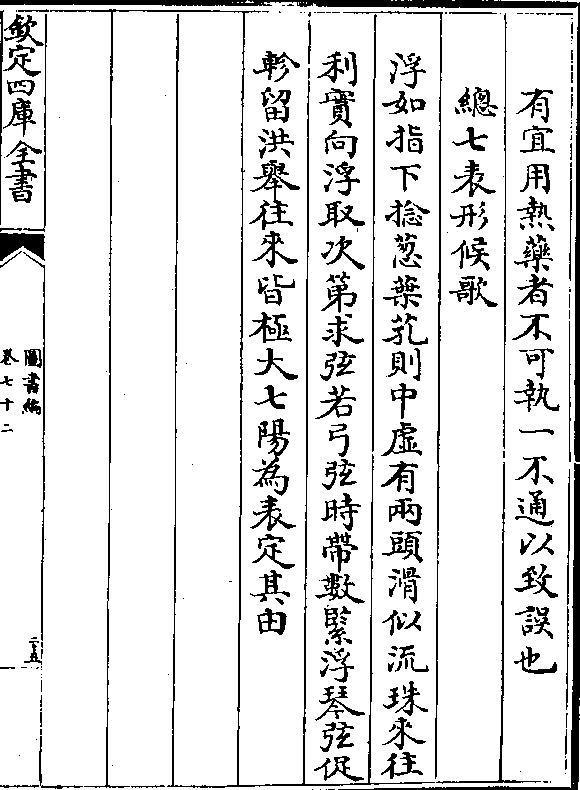 有宜用熱藥者不可執一不通以致誤也
總七表形候歌
浮如指下捻葱葉芤則中虛有兩頭滑似流珠來往
利實向浮取次第求弦若弓弦時帶數緊浮琴弦促
軫留洪舉往來皆極大七陽為表定其由
欽定四庫全書
圖書編
卷七十二
二五